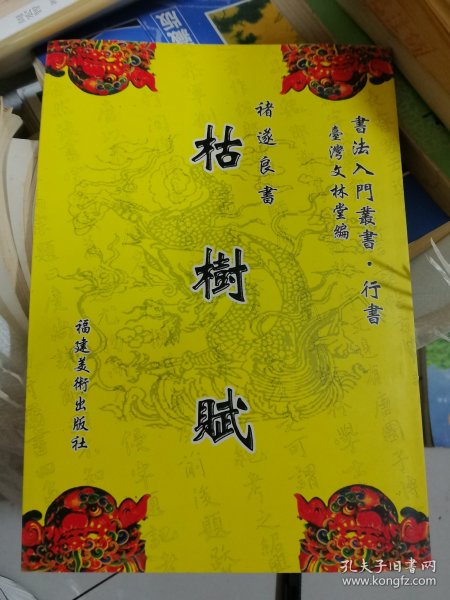 書法入門叢書·行書
臺灣文林堂編
褚遂良書
枯樹賦
福建美術出版社
孔夫子旧书网
www.kongfz.com